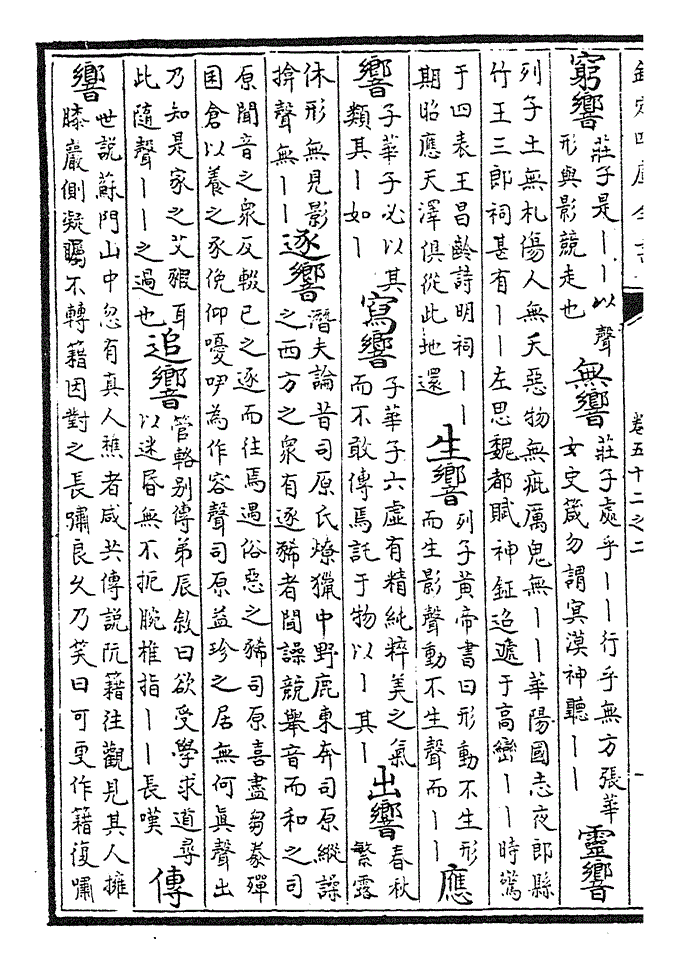 欽定四庫全書
卷五十二之二
窮響
莊子是丨丨以聲
形與影競走也
無響
莊子處乎丨丨行乎無方張華
女史箴勿謂冥漠神聽丨丨
靈響
列子土無札傷人無夭惡物無疵厲鬼無丨丨華陽國志夜郎縣
竹王三郎祠甚有丨丨左思魏都賦神鉦迢遞于高巒丨丨時驚
于四表王昌齡詩明祠丨丨
期昭應天澤俱從此地還
生響
列子黃帝書曰形動不生形
而生影聲動不生聲而丨丨
應
響
子華子必以其
類其丨如丨
寫響
子華子六虛有精純粹美之氣
而不敢傳焉託于物以丨其丨
出響
春秋
繁露
休形無見影
揜聲無丨丨
逐響
潛夫論昔司原氏燎獵中野鹿東奔司原縱譟
之西方之衆有逐豨者聞譟競舉音而和之司
原聞音之衆反輟已之逐而往焉遇俗惡之豨司原喜盡芻豢殫
囷倉以養之豕俛仰嚘咿為作容聲司原益珍之居無何眞聲出
乃知是家之艾豭耳
此隨聲丨丨之過也
追響
管輅别傳弟辰敘曰欲受學求道尋
以迷昏無不扼腕椎指丨丨長嘆
傳
響
世説蘇門山中忽有真人樵者咸共傳説阮籍往觀見其人擁
膝巖側凝矚不轉籍因對之長嘯良久乃笑曰可更作籍復嘯